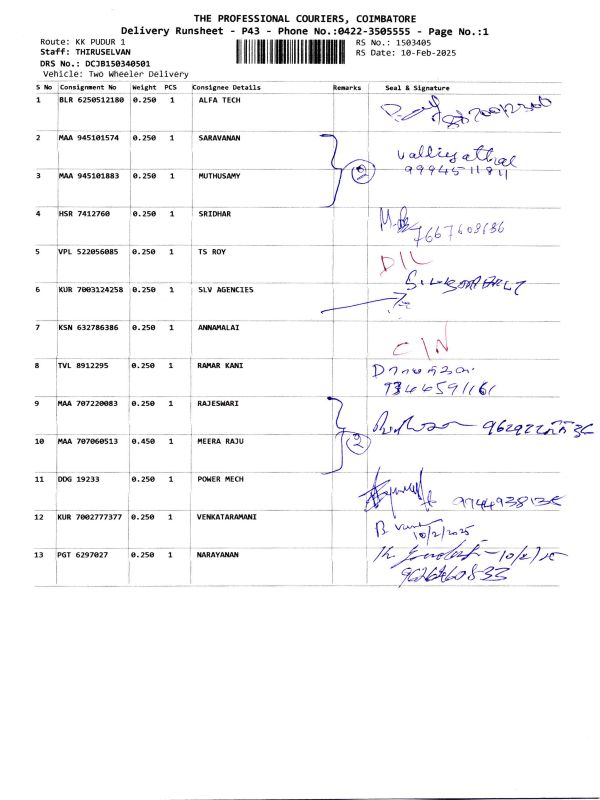 THE PROFESSIONAL COURIERS, COIMBATORE
Delivery Runsheet - P43 - Phone No.:0422-3505555 - Page No.:1
Route: KK PUDUR 1 RS No.: 1503405
Staff: THIRUSELVAN RS Date: 10-Feb-2025
DRS No.: DCJB150340501
Vehicle: Two Wheeler Delivery
S No Consignment No Weight PCS Consignee Details Remarks Seal & Signature
1 BLR 6250512180 0.250 1 ALFA TECH
2 MAA 945101574 0.250 1 SARAVANAN valliyathal
3 MAA 945101883 0.250 1 MUTHUSAMY 2 9994511811
4 HSR 7412760 0.250 1 SRIDHAR 7667608636
5 VPL 522056085 0.250 1 TS ROY D/L
6 KUR 7003124258 0.250 1 SLV AGENCIES
7 KSN 632786386 0.250 1 ANNAMALAI C/N
8 TVL 8912295 0.250 1 RAMAR KANI
9 MAA 707220083 0.250 1 RAJESWARI
10 MAA 707060513 0.450 1 MEERA RAJU 2
11 DDG 19233 0.250 1 POWER MECH
12 KUR 7002777377 0.250 1 VENKATARAMANI 10/2/2025
13 PGT 6297027 0.250 1 NARAYANAN